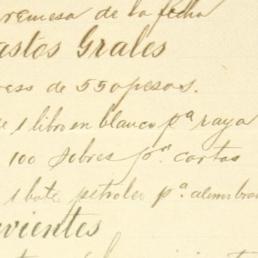 remesa de la fecha
astos Grales
reso de 550 pesos.
e 1 libro en blanco pª raya
100 sobres pª cartas
1 bote petroleo pª alumbrad
vientes